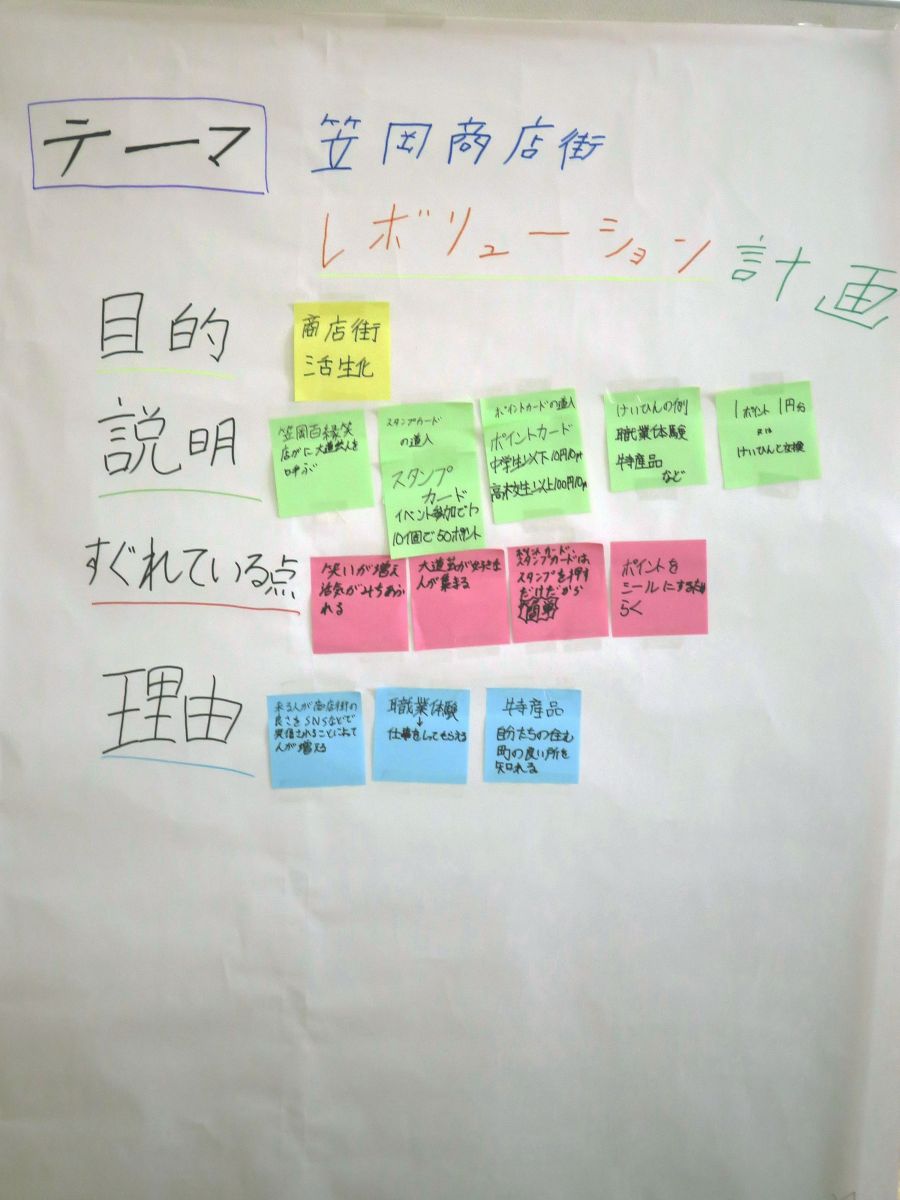 テーマ
笠岡商店街
レボリューション計画
目的
商店街
活生化
説明
笠岡百縁笑
店がに大道芸人を
呼ぶ
スタンプカード
の導入
スタンプ
カード
イベント参加で1つ
10個で50ポイント
ポイントカードの導入
ポイントカード
中学生以下10円10pt
高校生以上100円10pt
けいひんの例
職業体験
特産品
など
1ポイント 1円分
又は
けいひんと交換
すぐれている点
笑いが増え
活気がみちあふ
れる
大道芸が好きな
人が集まる
ポイントカード、
スタンプカードは、
スタンプを押す
だけだから
簡単
ポイントを
シールにする
らく
理由
来る人が商店街の
良さをSNSなどで
発信されることによって
人が増える
職業体験
↓
仕事をしってもらえる
特産品
自分たちの住む
町の良い所を
知れる